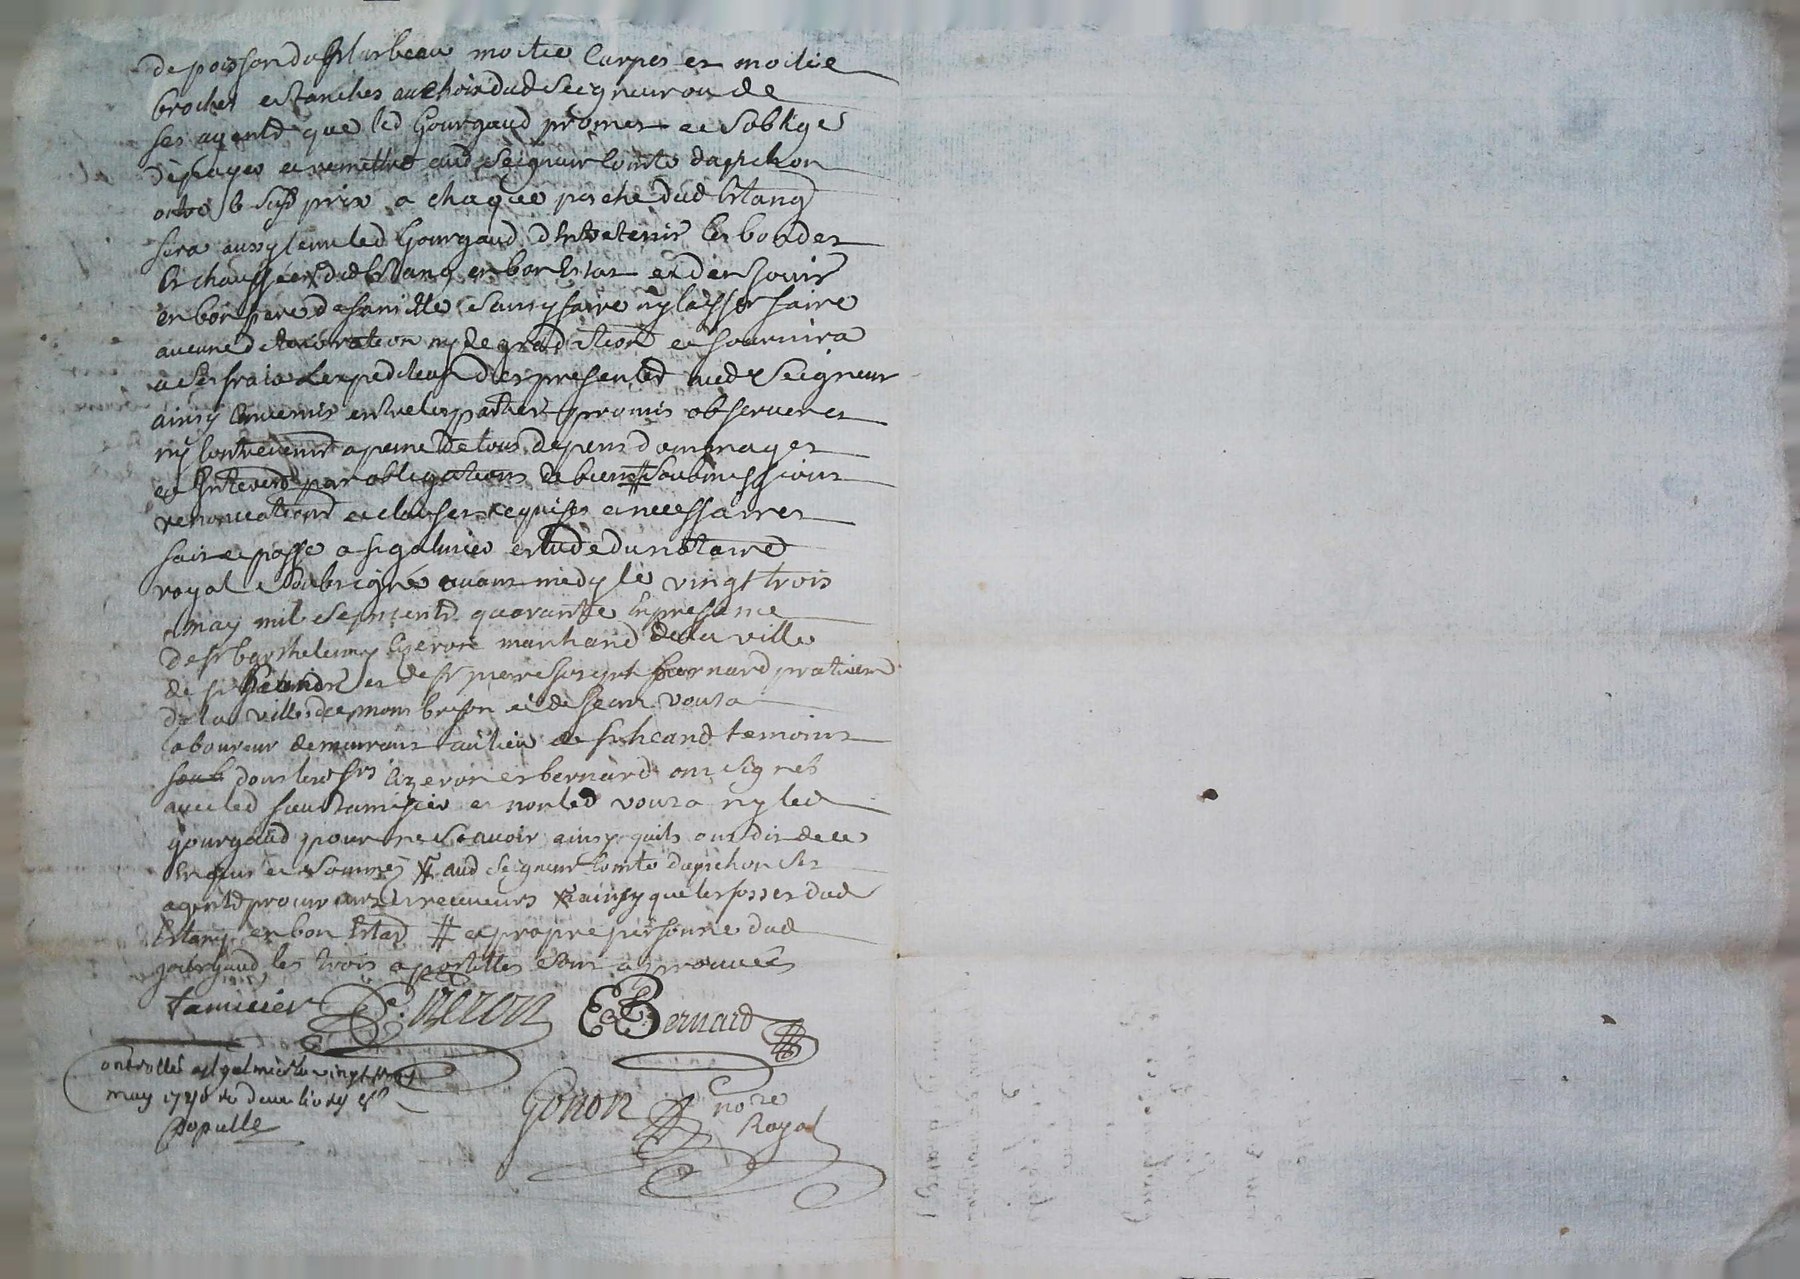 de poisson du moitie Carpes et moitie
broches et tanches au choix dud Seigneur ou de
ses agents que led Gourgaud promet et soblige
de payer et remettre aud Seigneur Comte dapchon
outre le susd prix a chaque peche dud Etang
sera aussy tenu led Gourgaud dentretenir les bondes
et chaussée dud Etang en bon Estat et den jouir
en bon pere de famille sans y faire ny laisser faire
aucune deterioration ny degradation et fournira
a ses frais lexpedition des presentes aud Seigneur
ainsy convenu entre les parties promis observer et
ny contrevenir a peine de tous depens dommages
et Interets par obligations de biens # soubmissions
renonciations et clauses requises et necessaires
fait et passé a st galmier etude du notaire
royal soubsigné avant midy le vingt trois
may mil sept cents quarante En presence
de sr barthelemy Ezeron marchand de la ville
de st et de sr pierre bernard praticien
de la ville de montbrison et de Jean vouza
laboureur demeurant au lieu de temoins
dont lesd srs Ezeron et bernard ont signés
avec led sieur tamisier et non led vouza ny led
gourgaud pour ne scavoir ainsy quils ont dit de ce
Enquis et sommés aud Seigneur Comte dapchon ses
agents procureurs et receveurs ainsy que les fosses dud
Etang en bon Estat # et propre personne dud
gourgaud les trois apostilles sont approuvées
tamisier Ezeron Bernard
Controllé a st galmier le vingt
may 1740 re deux livres
Populle
Gonon no re
Royal